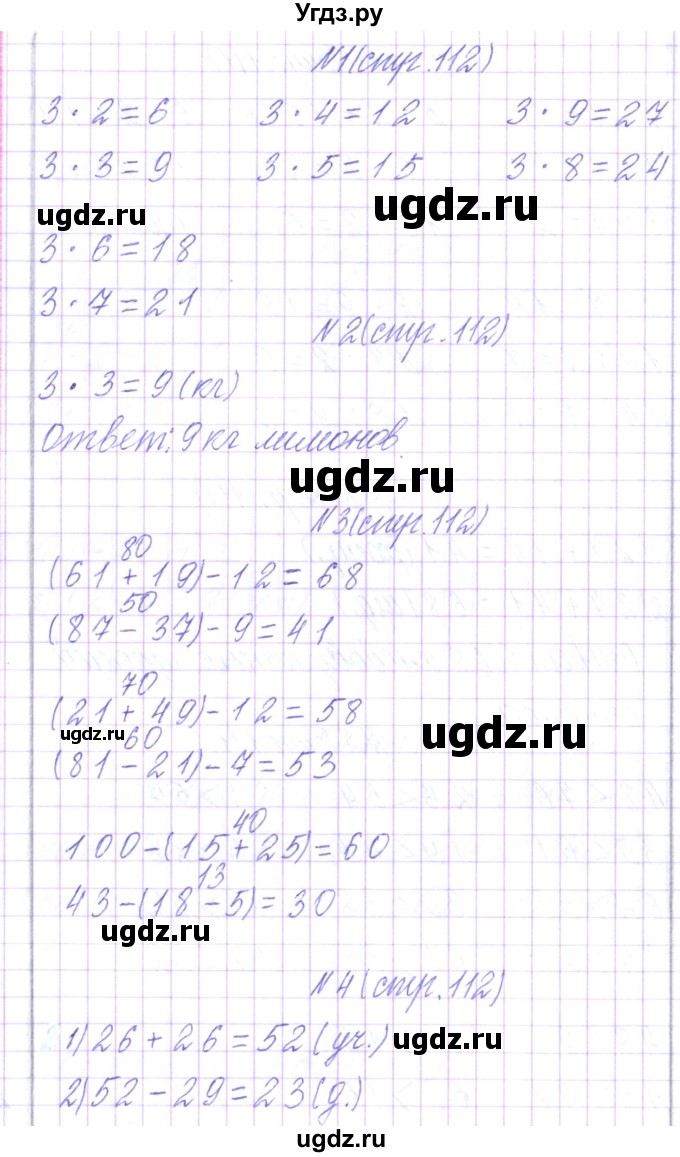 Угдз.ру
№1(стр.112)
3·2=6 3·4=12 3·9=27
3·3=9 3·5=15 3·8=24
ugdz.ru ugdz.ru
3·6=18
3·7=21
№2(стр.112)
ugdz.ru
3·3=9(кг)
Ответ: 9кг лимонов.
ugdz.ru
№3(стр.112)
80
(61+19)-12=68
50
(87-37)-9=41
70
(21+49)-12=58
ugdz.ru ugdz.ru
60
(81-21)-7=53
40
100-(15+25)=60
13
43-(18-5)=30
ugdz.ru
№4(стр.112)
1)26+26=52(уч.)
ugdz.ru
2)52-29=23(д.)
ugdz.ru